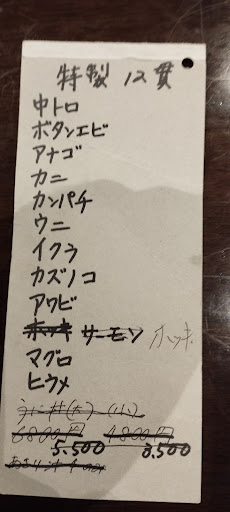 特製 12貫
中トロ
ボタンエビ
アナゴ
カニ
カンパチ
ウニ
イクラ
カズノコ
アワビ
ホッキ サーモン ホッキ
マグロ
ヒラメ
うに丼(大) (小)
6800円 4800円
5.500 3.500